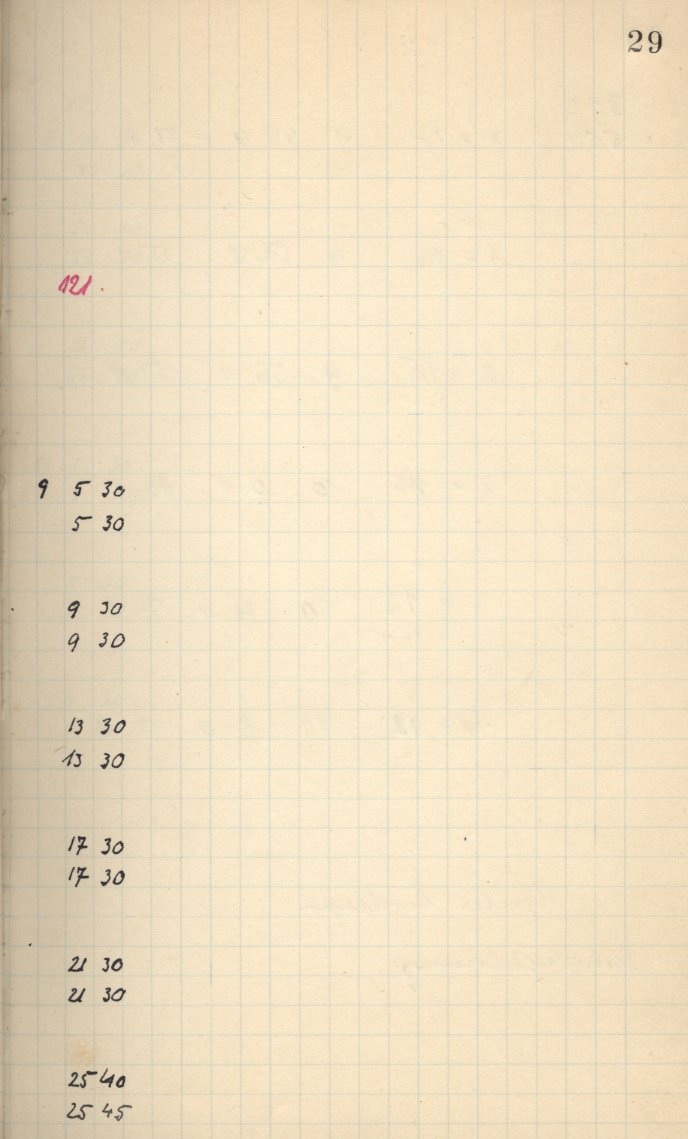 29
121.
9 5 30
5 30
9 30
9 30
13 30
13 30
17 30
17 30
21 30
21 30
25 40
25 45